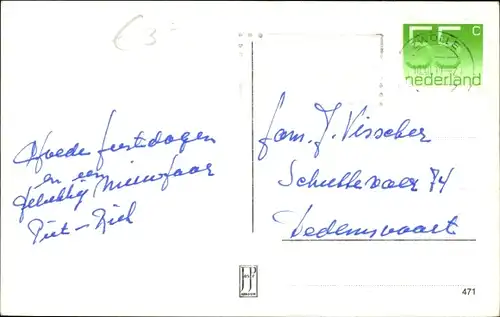 € 3
55 c
nederland
ZWOLLE
Goede feestdagen
en een
gelukkig nieuwjaar
Piet - Riek
fam. J. Visscher
Schuttevaer 74
Dedemsvaart
471